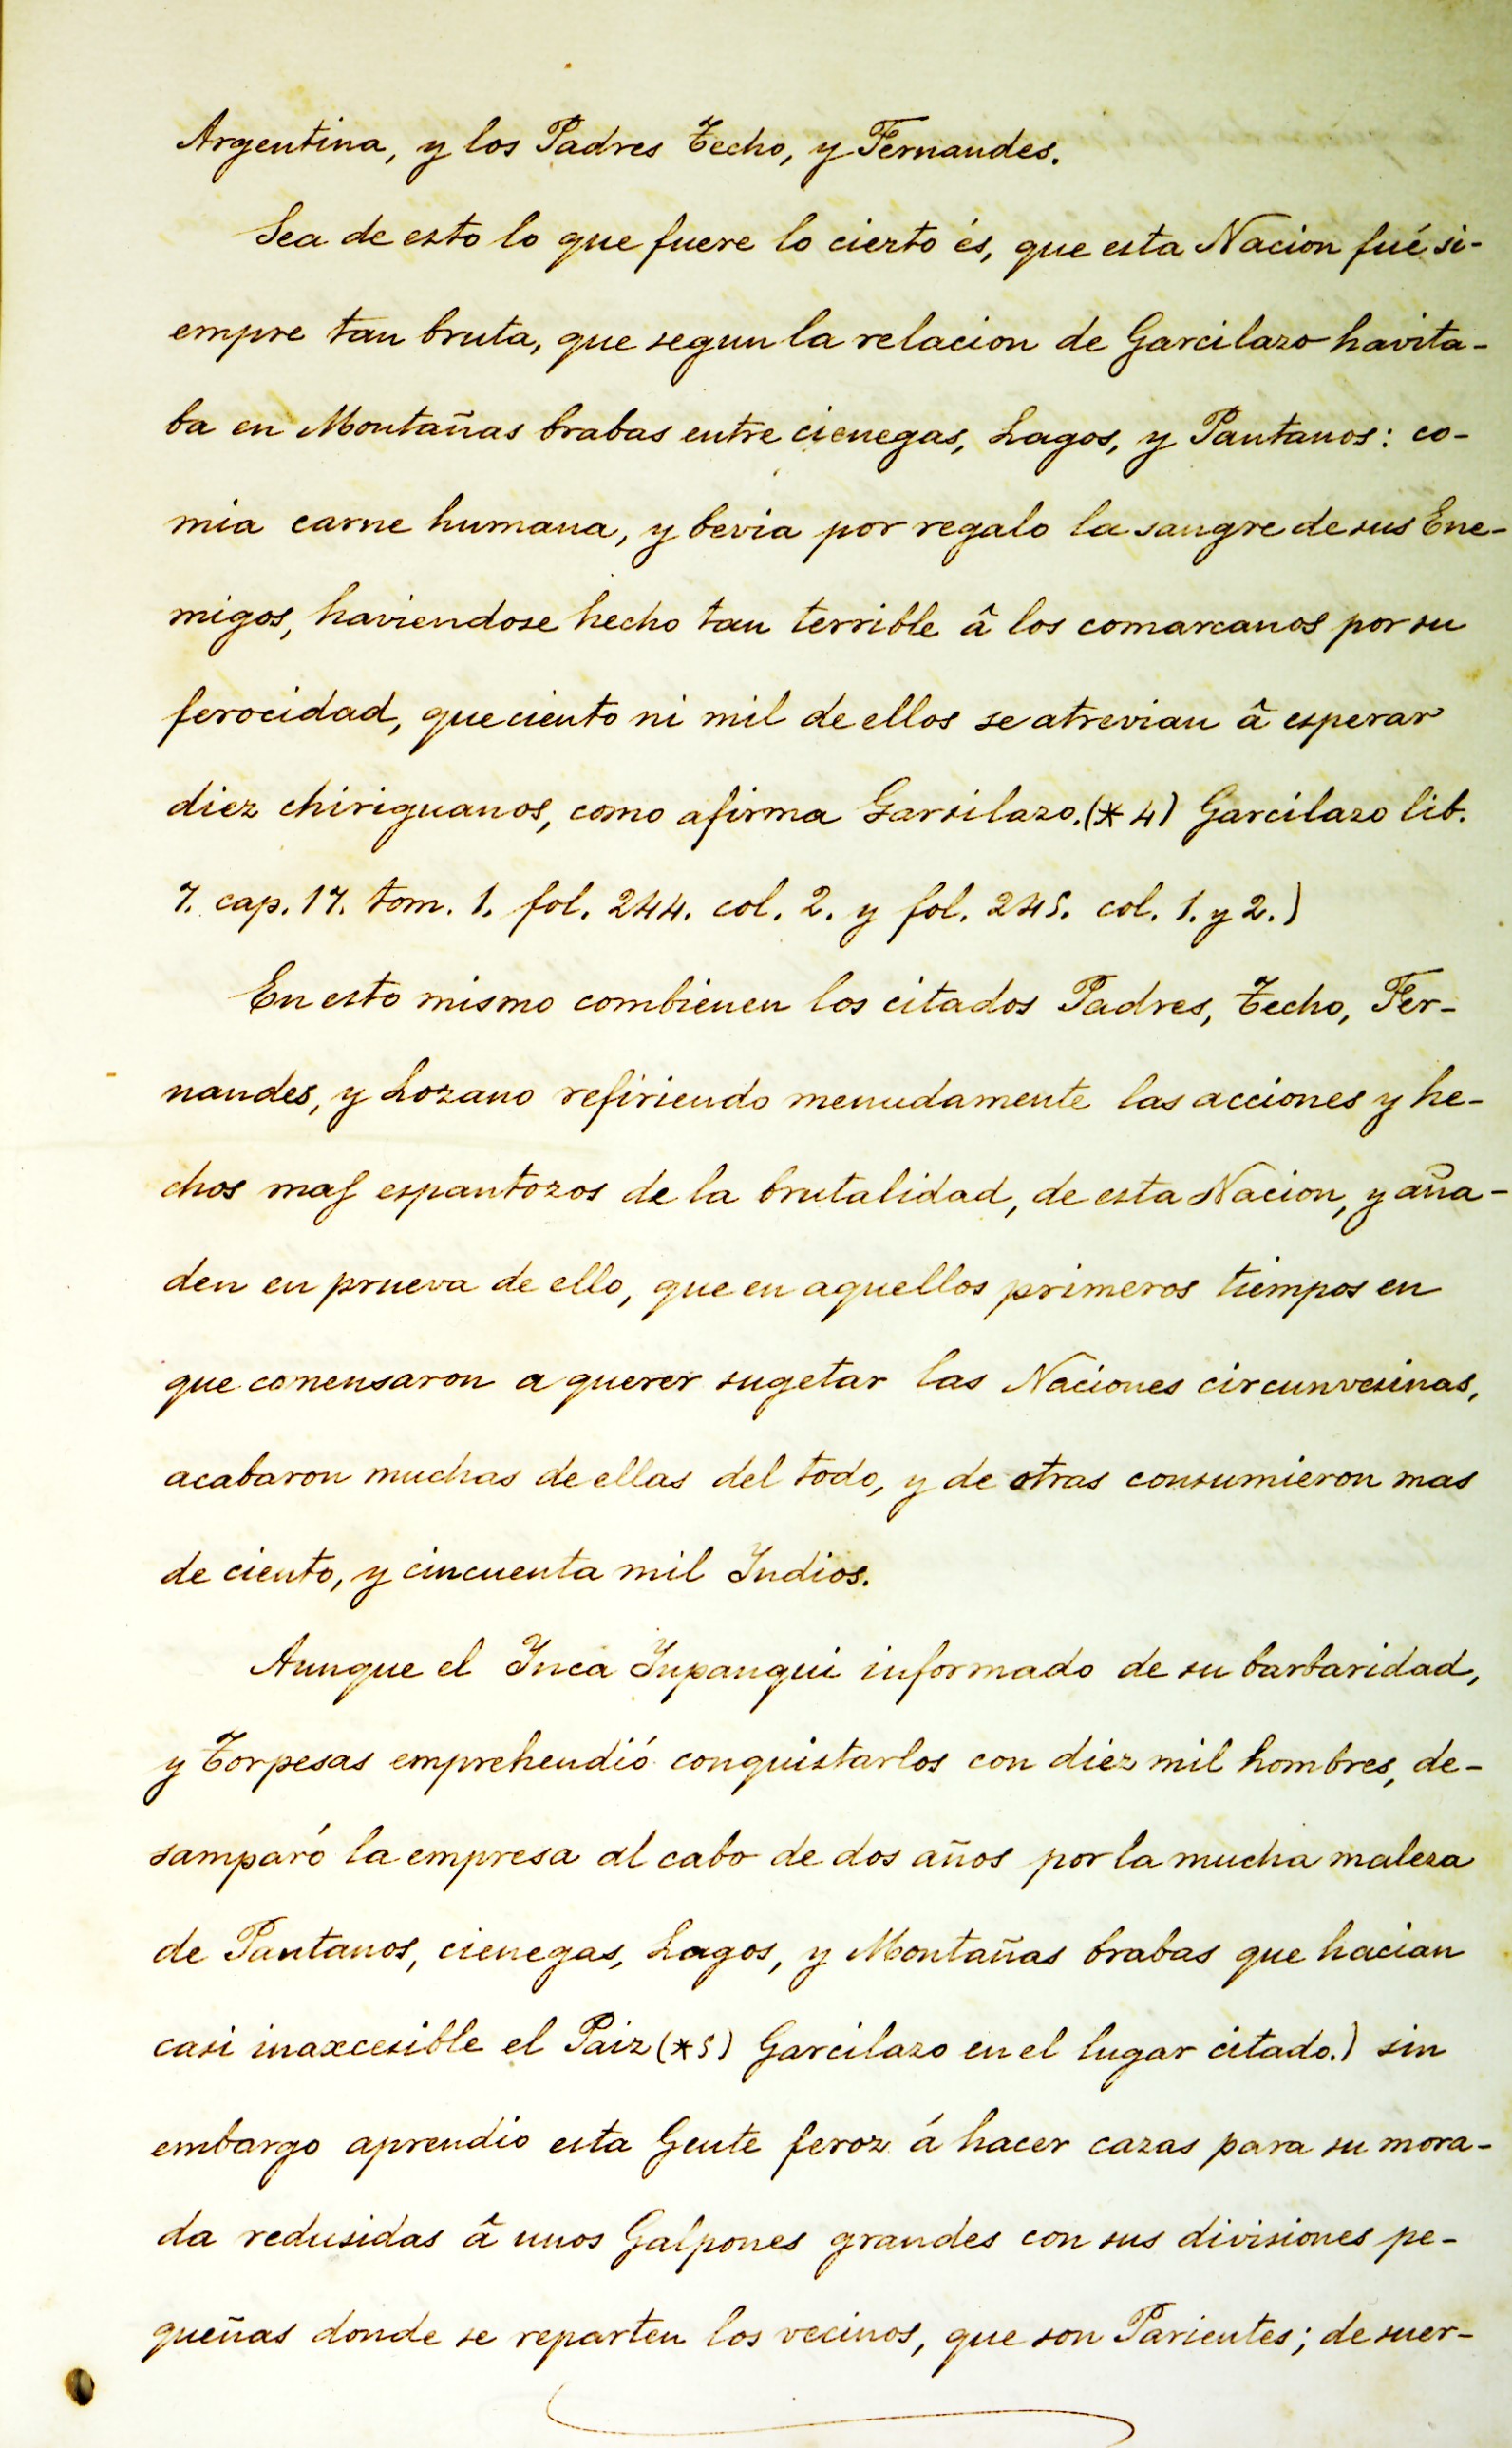 Argentina, y los Padres Techo, y Fernandes.
Sea de esto lo que fuere lo cierto és, que esta Nacion fué si-
empre tan bruta, que segun la relacion de Garcilazo havita-
ba en Montañas brabas entre cienegas, Lagos, y Pantanos: co-
mia carne humana, y bevia por regalo la sangre de sus Ene-
migos, haviendose hecho tan terrible â los comarcanos por su
ferocidad, que ciento ni mil de ellos se atrevian â esperar
diez chiriguanos, como afirma Garsilazo. (* 4) Garcilazo lib.
7. cap. 17. tom. 1. fol. 244. col. 2. y fol. 245. col. 1. y 2.)
En esto mismo combienen los citados Padres, Techo, Fer-
nandes, y Lozano refiriendo menudamente las acciones y he-
chos mas espantozos de la brutalidad, de esta Nacion, y aña-
den en prueva de ello, que en aquellos primeros tiempos en
que comensaron a querer sugetar las Naciones circunvesinas,
acabaron muchas de ellas del todo, y de otras consumieron mas
de ciento, y cincuenta mil Indios.
Aunque el Inca Iupanqui informado de su barbaridad,
y Torpesas emprehendió conquistarlos con diez mil hombres, de-
samparó la empresa al cabo de dos años por la mucha maleza
de Pantanos, cienegas, Lagos, y Montañas brabas que hacian
casi inaxcesible el Paiz (* 5) Garcilazo en el lugar citado.) sin
embargo aprendio esta Gente feroz á hacer cazas para su mora-
da redusidas â unos Galpones grandes con sus divisiones pe-
queñas donde se reparten los vecinos, que son Parientes; de suer-